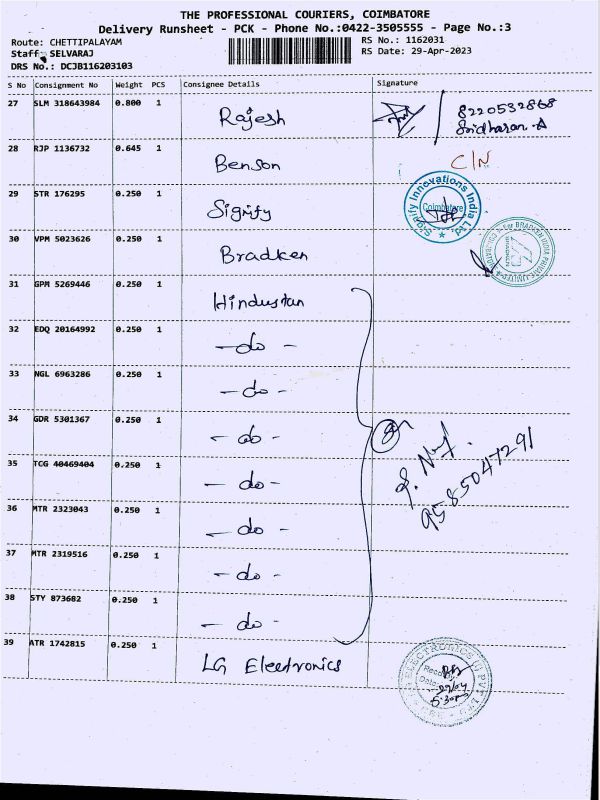 THE PROFESSIONAL COURIERS, COIMBATORE
Delivery Runsheet - PCK - Phone No.:0422-3505555 - Page No.:3
Route: CHETTIPALAYAM RS No.: 1162031
Staff: SELVARAJ RS Date: 29-Apr-2023
DRS No.: DCJB116203103
S No Consignment No Weight PCS Consignee Details Signature
27 SLM 318643984 0.800 1 Rajesh 8220532868
Sridharan.A
28 RJP 1136732 0.645 1 Benson C/N
29 STR 176295 0.250 1 Signify
Signify Innovations India Ltd.
Coimbatore
30 VPM 5023626 0.250 1 Bradken
BRADKEN
31 GPM 5269446 0.250 1 Hindustan
32 EDQ 20164992 0.250 1 -do-
33 NGL 6963286 0.250 1 -do-
34 GDR 5301367 0.250 1 -do-
35 TCG 40469404 0.250 1 -do-
9585047291
36 MTR 2323043 0.250 1 -do-
37 MTR 2319516 0.250 1 -do-
38 STY 873682 0.250 1 -do-
39 ATR 1742815 0.250 1 LG Electronics